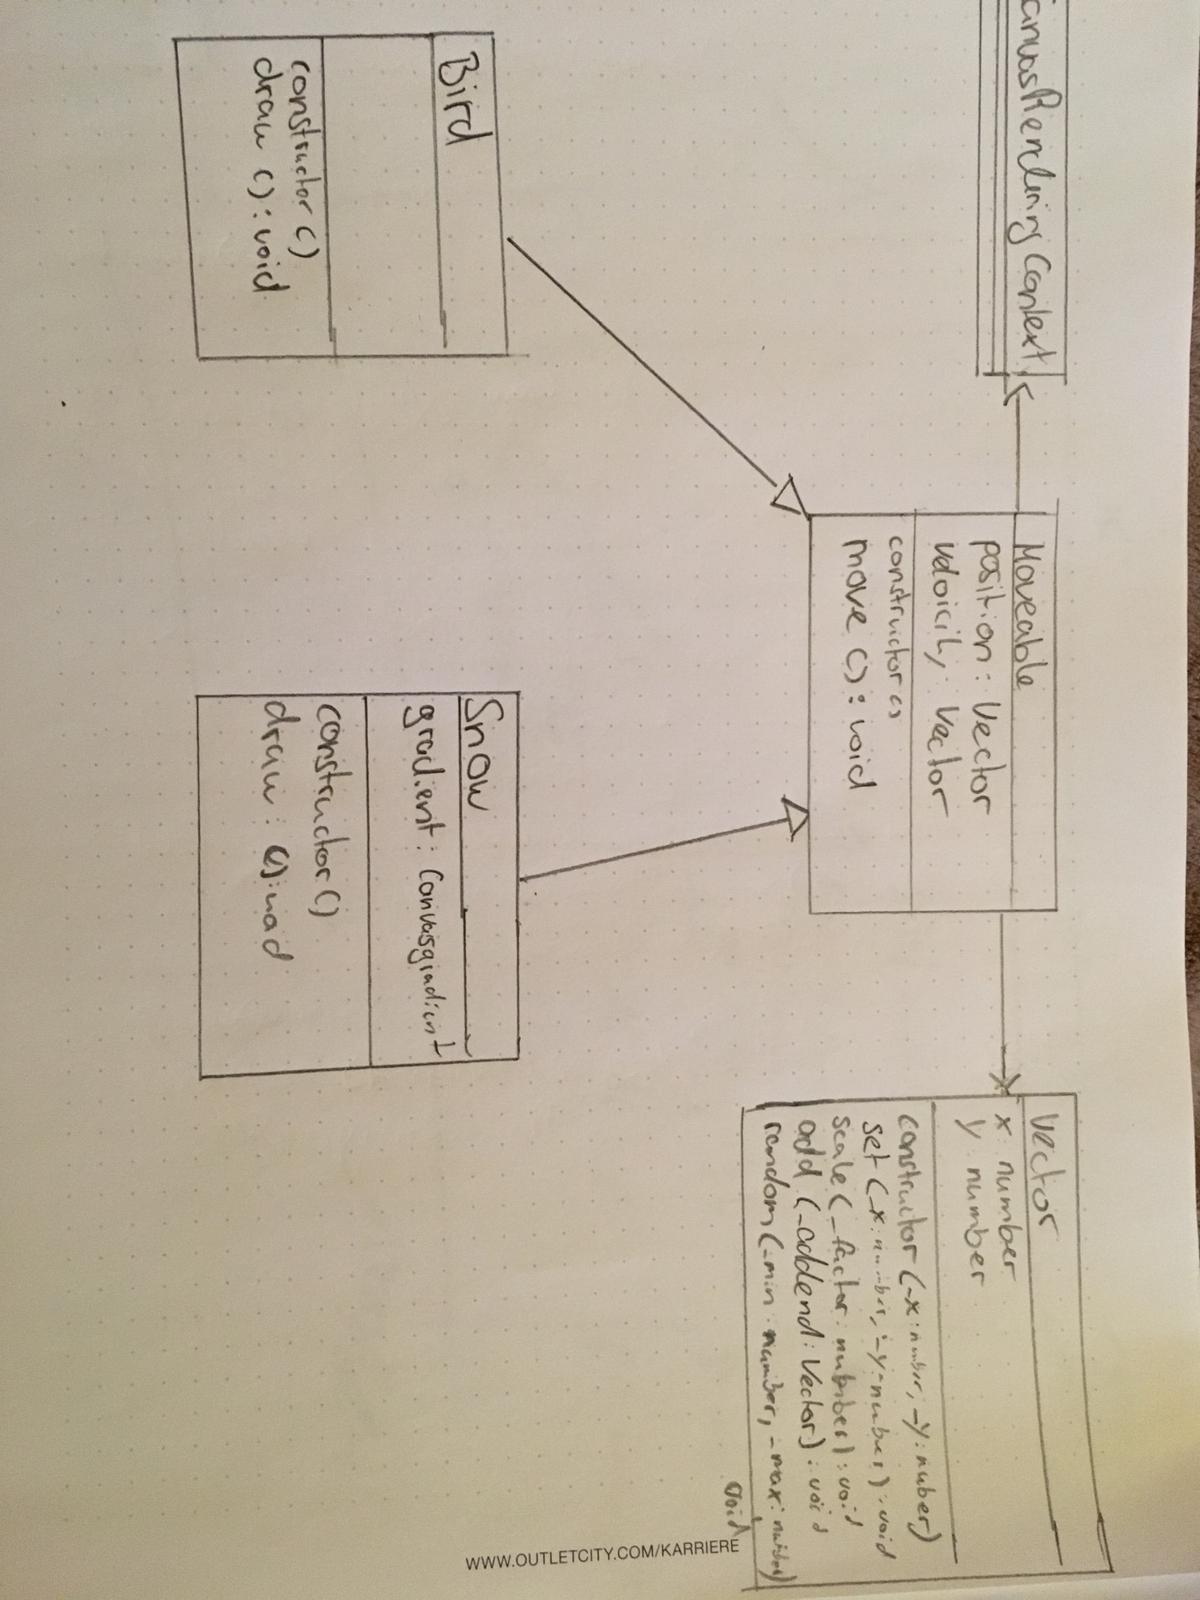 anvasRenderingContext
Moveable
position: Vector
veloicity: Vector
constructor ()
move (): void
Vector
x number
y number
constructor (_x:number, _y:nuber)
set (_x:number, _y:number): void
scale (_factor: number): void
add (_addend: Vector): void
random (_min number, _max: number)
void
WWW.OUTLETCITY.COM/KARRIERE
Bird
constructor ()
draw (): void
Snow
gradient: Canvasgradient
constructor ()
draw: (): void